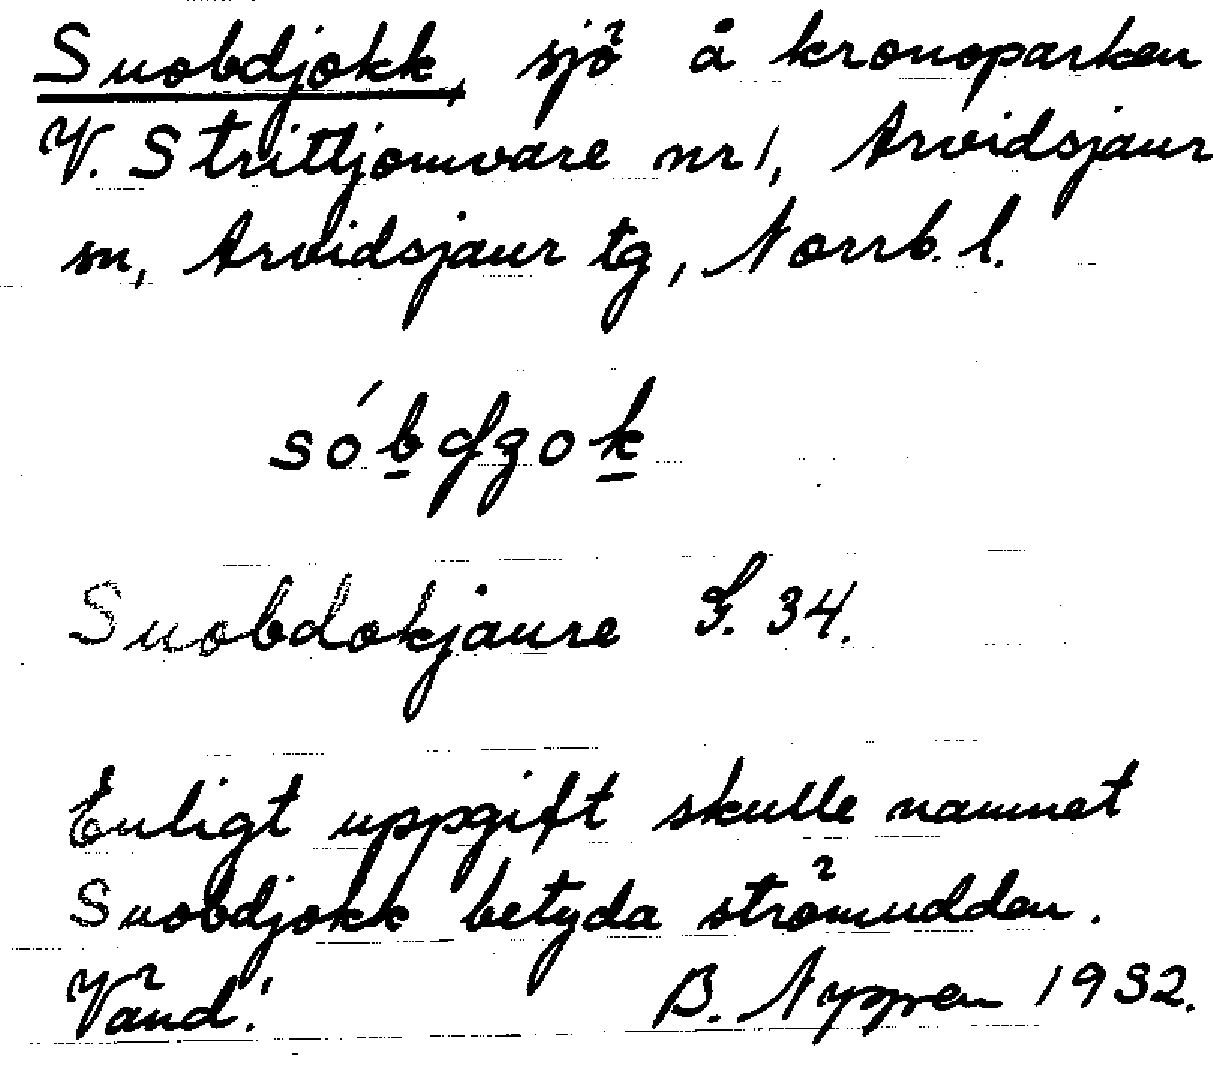 Suobdjokk, sjö å kronoparken
V. Strittjomvare nr 1, Arvidsjaur
sn, Arvidsjaur tg, Norrb. l.
Suobdokjaure S. 34.
Enligt uppgift skulle namnet
Suobdjokk betyda strömudden.
Vänd! B. 1932.